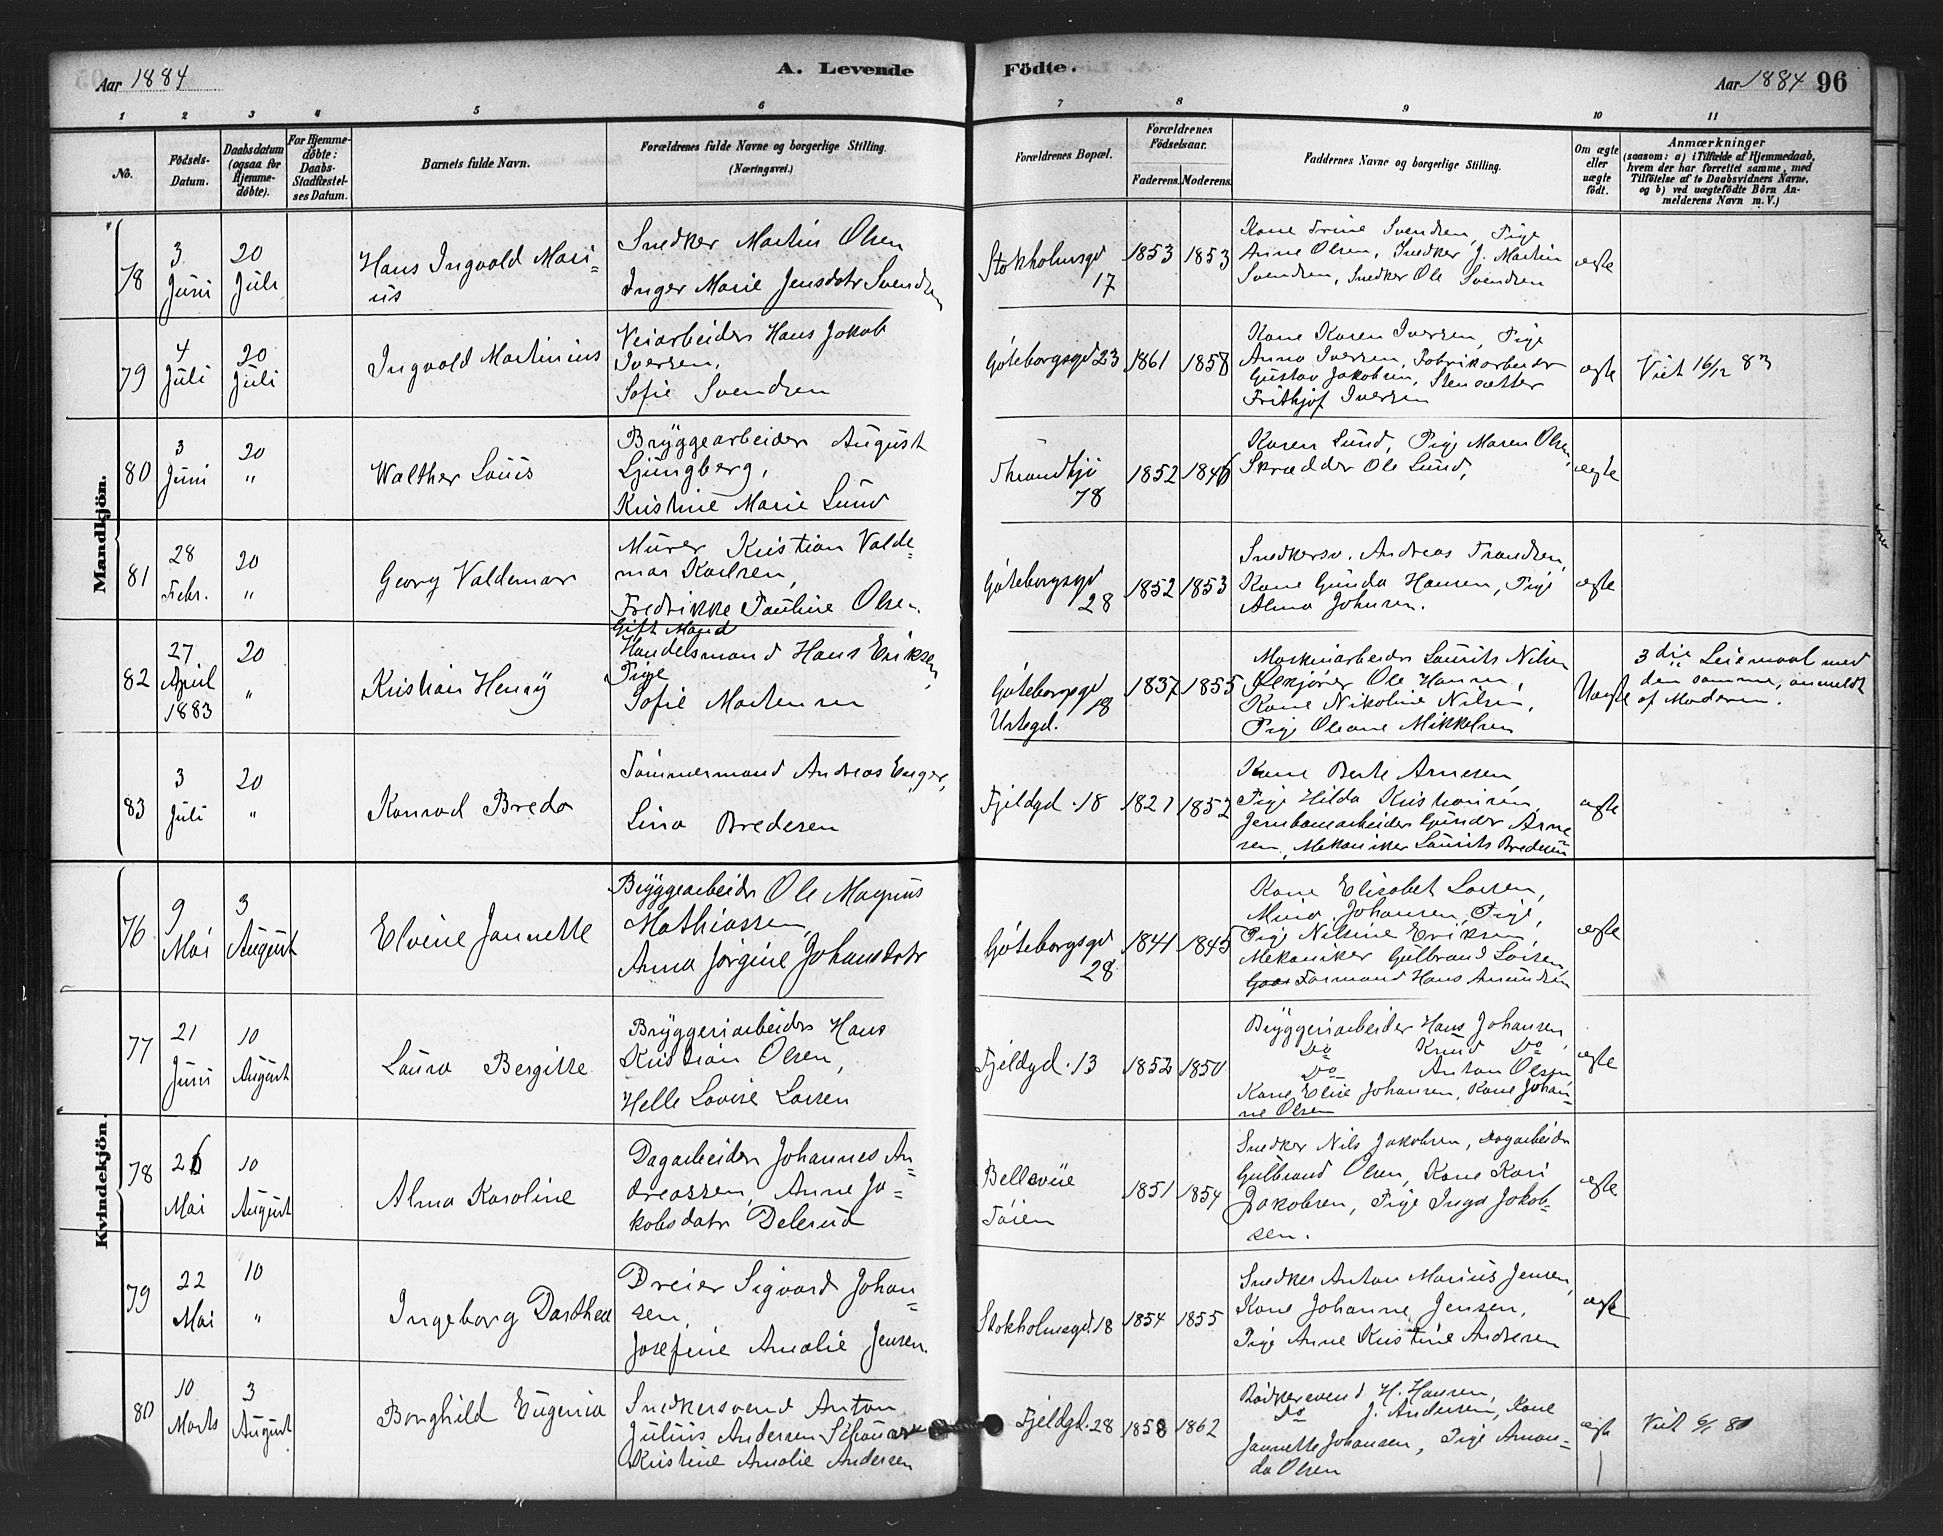 Aar 1884
A. Levende
Födte.
Aar 1884 96
1 2 3 4 5 6 7 8 9 10 11
No.
Födsels-Datum.
Daabsdatum (ogsaa for Hjemme-döbte).
For Hjemme-döbte: Daabs-Stadfæstel-ses Datum.
Barnets fulde Navn.
Forældrenes fulde Navne og borgerlige Stilling.
(Næringsvei.)
Forældrenes Bopæl.
Forældrenes Födselsaar.
Faderens. Moderens.
Faddernes Navne og borgerlige Stilling.
Om ægte eller uægte födt.
Anmærkninger
(saasom: a) i Tilfælde af Hjemmedaab,
hvem der har forrettet samme, med
Tilföielse af to Daabsvidners Navne.
og b) ved uægtefödte Börn An-
melderens Navn m. V.)
Mandkjön.
78
3 Juni
20 Juli
Hans Ingvald Mari=
us
Snedker Martin Olsen
Inger Marie Jensdatr Svendsen
Stokholmsgd
17
1853 1853
Kone Trine Svendsen, Pige
Anne Olsen, Snedker J. Martin
Svendsen, Snedker Ole Svendsen
ægte
79
4 Juli
20 Juli
Ingvald Martinius
Veiarbeider Hans Jakob
Iversen,
Sofie Svendsen
Göteborgsgd 23
1861 1858
Kone Karen Iversen, Pige
Anna Iversen, Fabrikarbeider
Gustav Jakobsen, Stensætter
Frithjof Iversen
ægte
Viet 16/12 83
80
3 Juni
20 "
Walther Louis
Bryggearbeider August
Ljungberg,
Kristine Marie Lund
Throndhj
78
1852 1846
Karen Lund, Pige Maren Olsen,
Skrædder Ole Lund,
ægte
81
28 Febr.
20 "
Georg Valdemar
Murer Kristian Valde=
mar Karlsen,
Fredrikke Pauline Olsen
Göteborgsgd
28
1852 1853
Snedkersv. Andreas Frandsen,
Kone Gunda Hansen, Pige
Alma Johnsen.
ægte
82
27 April 1883
20 "
Kristian Henry
Gift Mand
Handelsmand Hans Eriksen,
Pige
Sofie Martensen
Göteborgsgd
18
Urtegd.
1837 1855
Maskinarbeider Laurits Nilsen
Ole Hansen,
Kone Nikoline Nilsen,
Pige Oleane Mikkelsen
Uægte
3 die Leiemaal med
den samme, anmeldt
af Moderen.
83
3 Juli
20 "
Konrad Breda
Tömmermand Andreas Enger,
Lina Bredesen
Fjeldgd. 18
1821 1852
Kone Berte Arnesen,
Pige Hilda Kristiansen,
Jernbanearbeider Gunder Arne
sen, Mekaniker Laurits Bredesen
ægte
Kvindekjön.
76
9 Mai
3 August
Elvine Jannette
Bryggearbeider Ole Magnus
Mathiassen,
Anna Jörgine Johansdatr
Göteborgsgd
28
1841 1845
Kone Elisabet Larsen,
Mina Johansen, Pige,
Pige Nilsine Eriksen
Mekaniker Gulbrand Larsen,
Formand Hans Amundsen
ægte
77
21 Juni
10 August
Laura Bergitte
Bryggeriarbeider Hans
Kristian Olsen,
Helle Lovise Larsen
Fjeldgd. 13
1852 1850
Bryggeriarbeider Hans Johansen,
Do Knud Do
Do Anton Olsen
Kone Elise Johansen, Kone Johan=
ne Olsen
ægte
78
26 Mai
10 August
Alma Karoline
Dagarbeider Johannes An=
dreassen, Anne Ja=
kobsdatr Delerud
Bellevüe
Töien
1851 1854
Snedker Nils Jakobsen, Dagarbeider
Gulbrand Olsen, Kone Kari
Jakobsen, Pige Inga Jakob=
sen.
ægte
79
22 Mai
10 "
Ingeborg Dorthea
Dreier Sigvard Johan=
sen,
Josefine Amalie Jensen
Stokholmsgd. 18
1854 1855
Snedker Anton Marius Jensen,
Kone Johanne Jensen,
Pige Anne Kristine Andresen
ægte
80
10 Marts
3 August
Borghild Eugenia
Snedkersvend Anton
Julius Andersen
Kristine Amalie Andersen
Fjeldgd. 28
1858 1862
Bödkersvend H. Hansen,
Do J. Andersen, Kone
Jannette Johansen, Pige Aman=
da Olsen
ægte
Viet 6/1 80